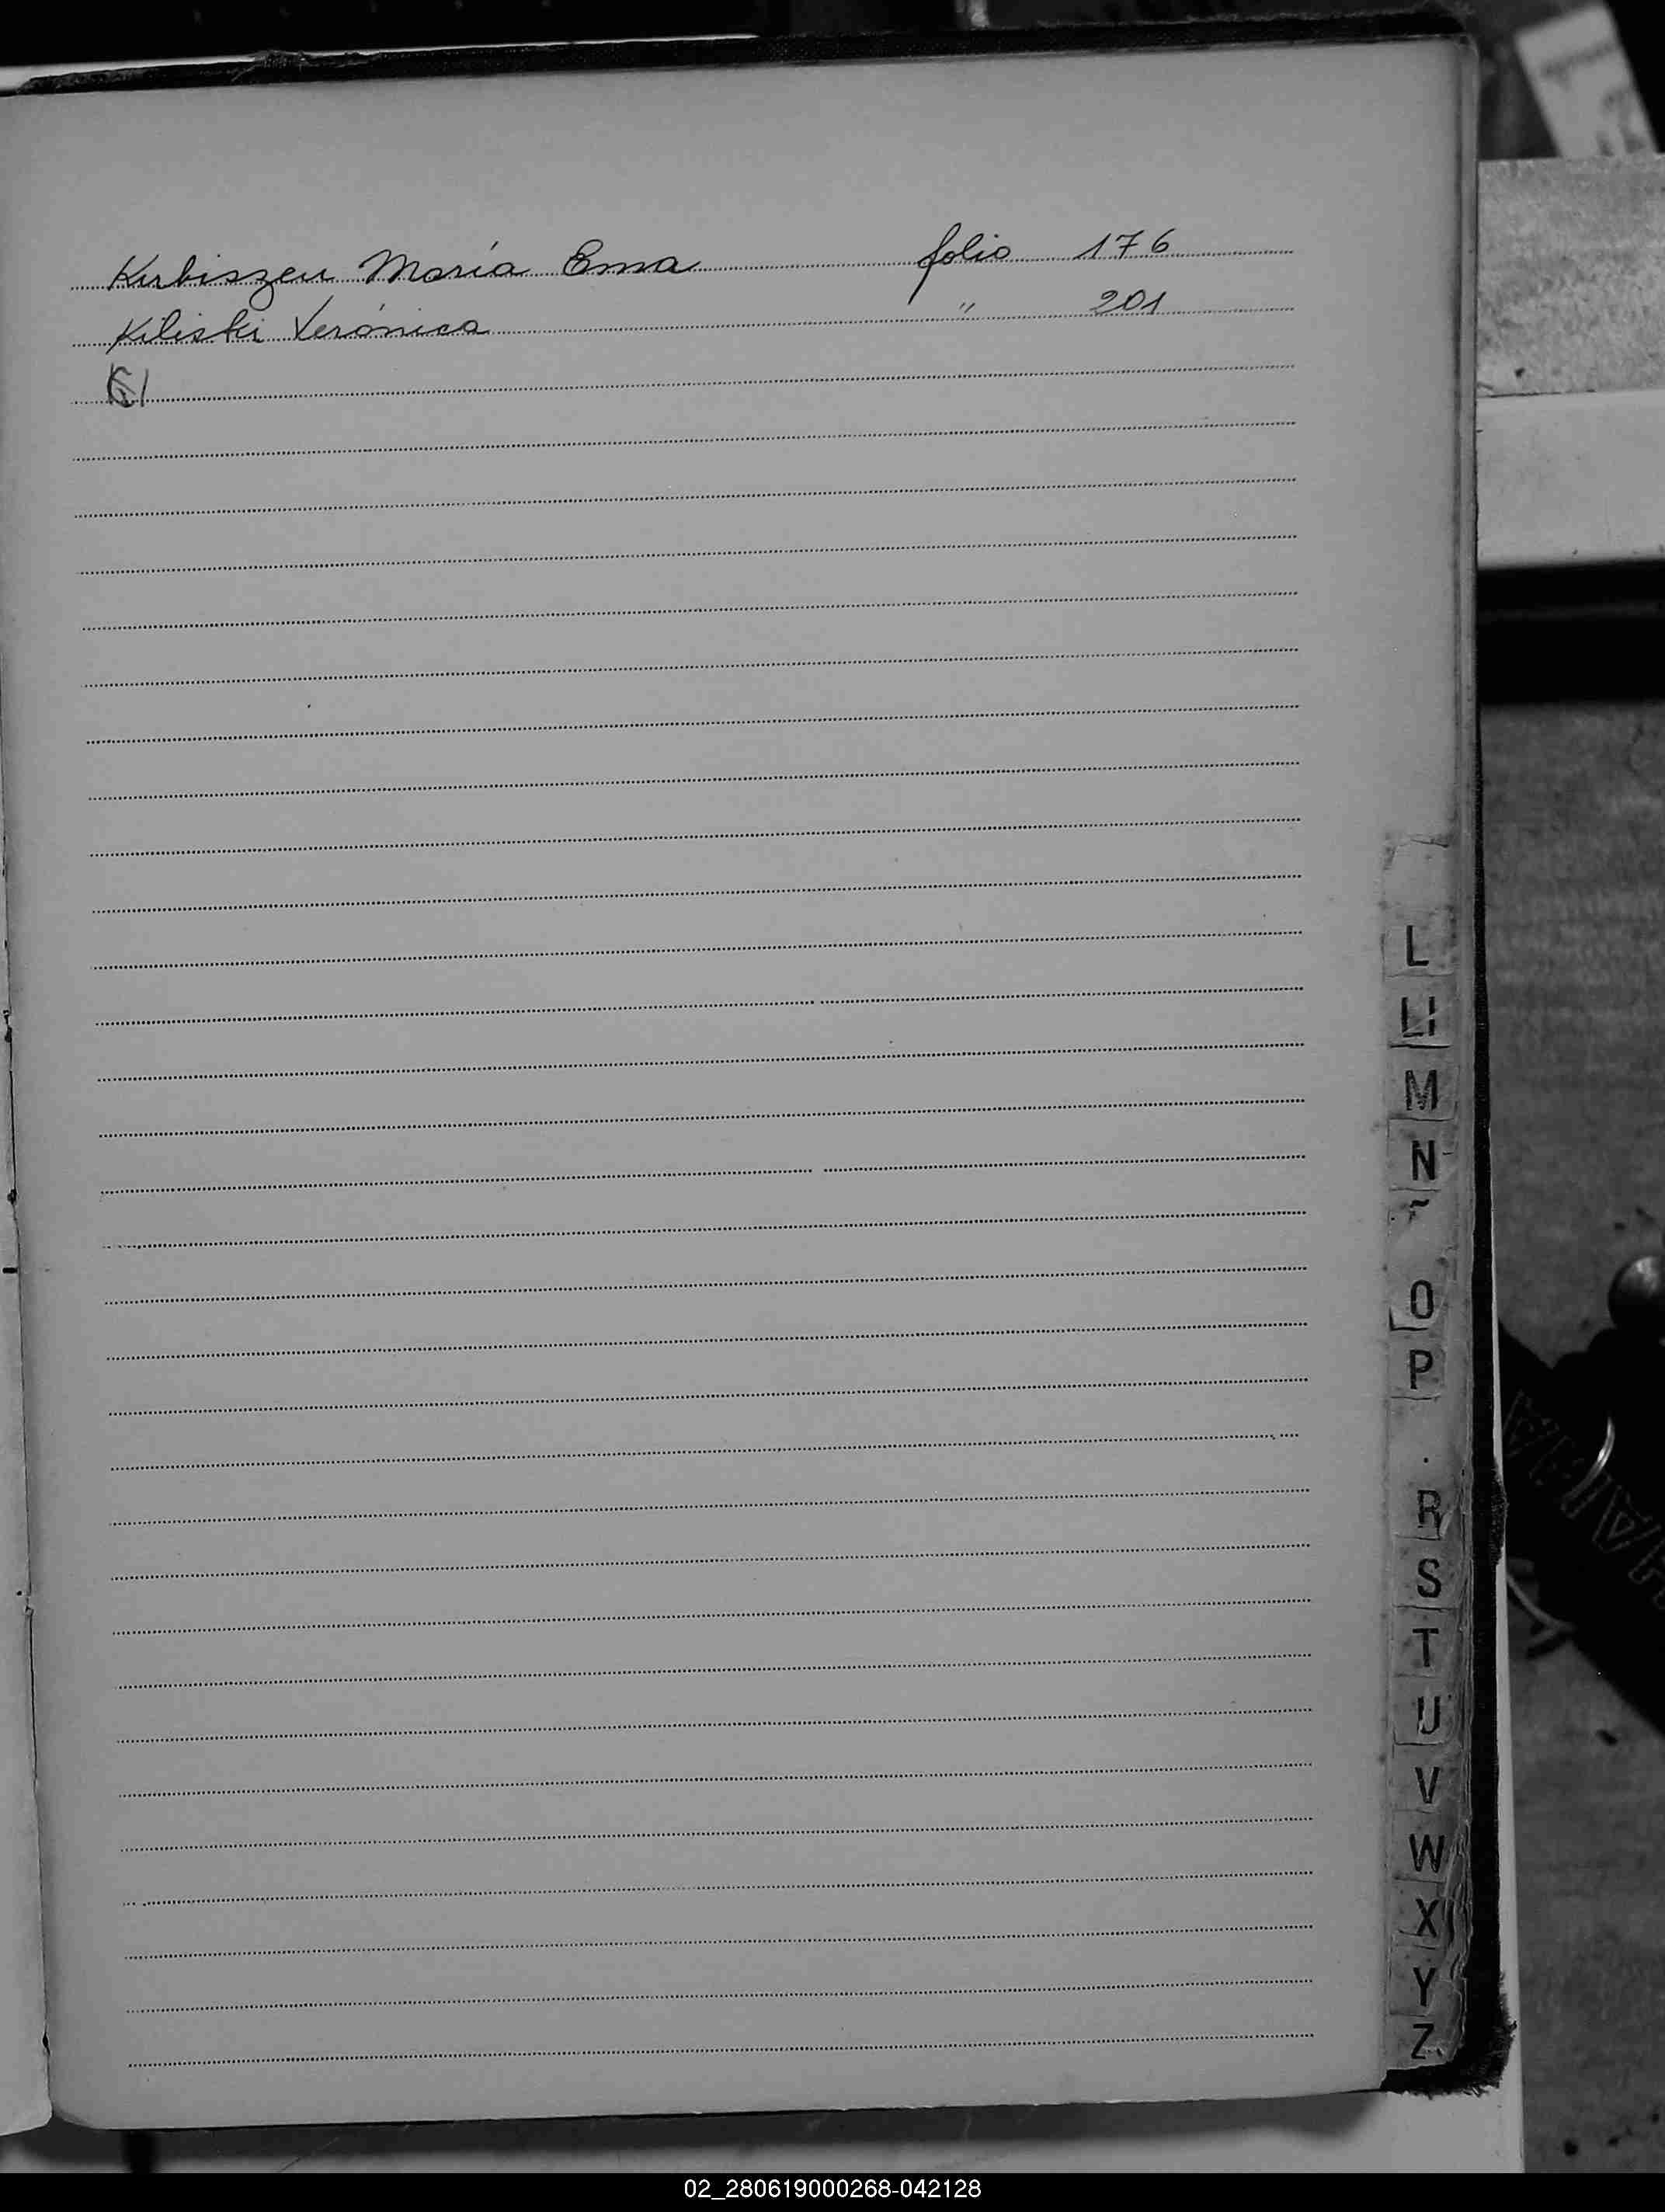 Kurbiszeu María Ema folio 176
Kiliski Verónica " 201
L
Ll
M
N
O
P
R
S
T
U
V
W
X
Y
Z
02_280619000268-042128